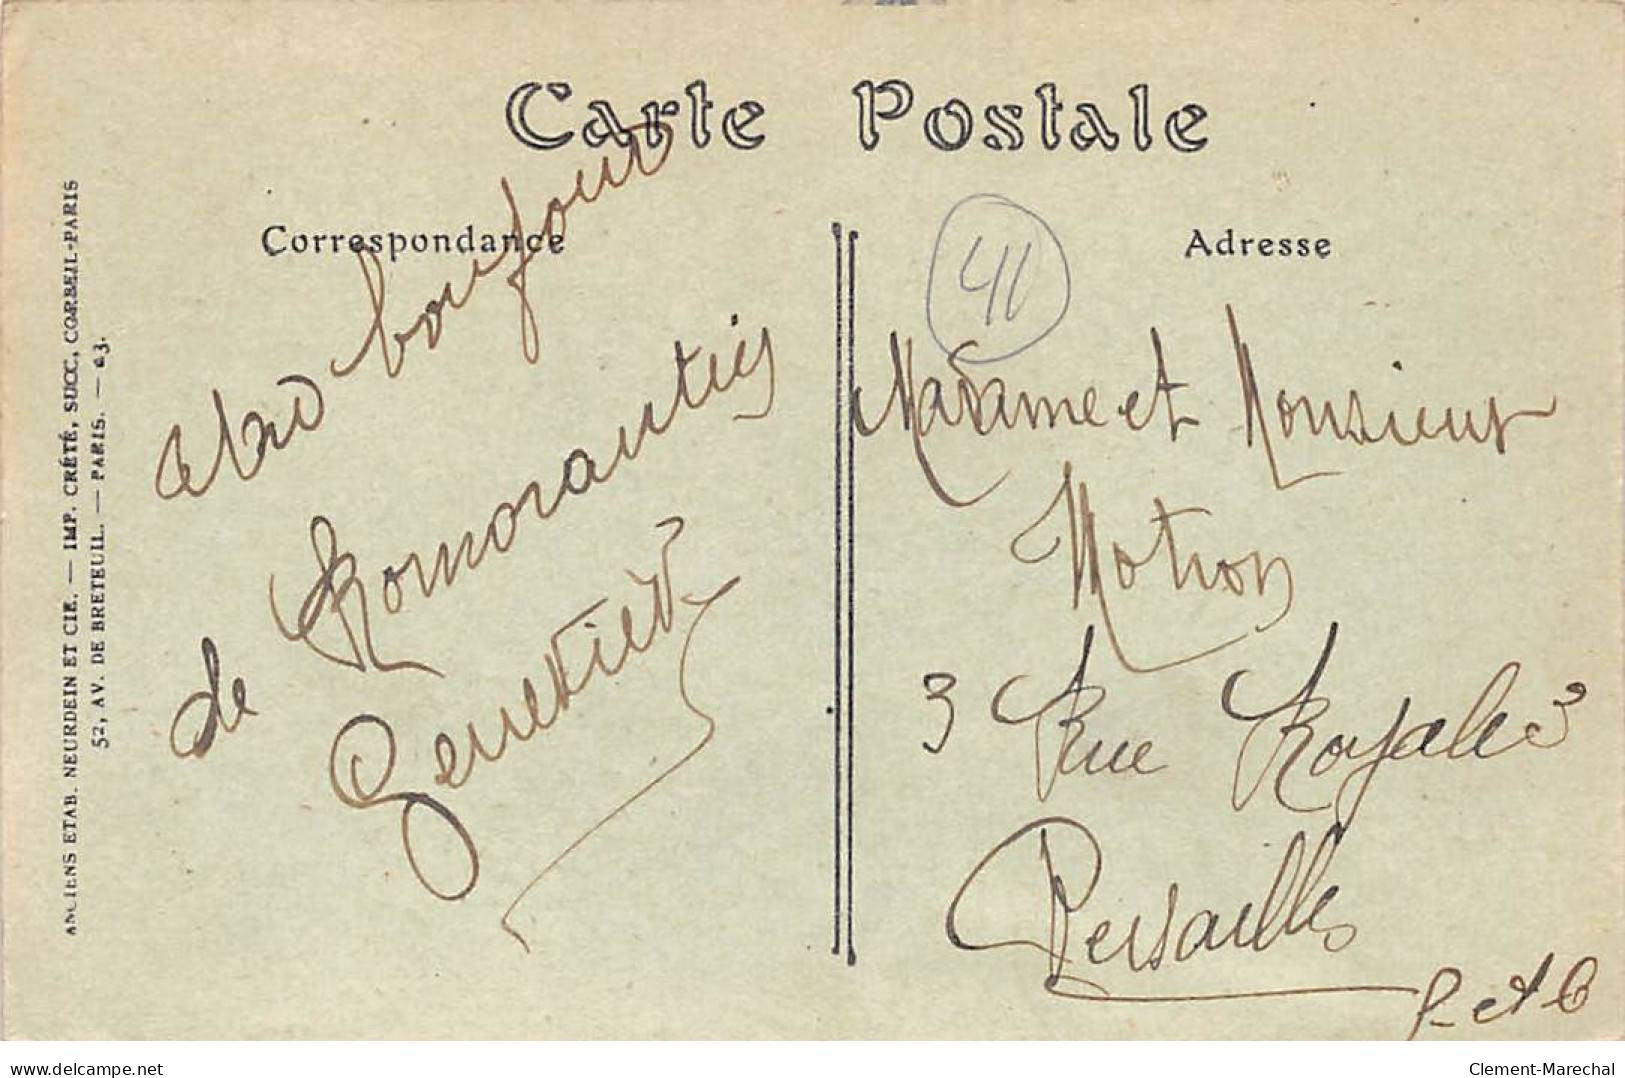 Carte Postale
Correspondance
bonjour
de Romorantin
Geneviève
Adresse
41
Madame et Monsieur
Motron
3 Rue Royale 3
Versailles
S. et O
ANCIENS ETAB. NEURDEIN ET CIE. — IMP. CRÉTÉ, SUCC, CORBEIL-PARIS
52, AV. DE BRETEUIL. — PARIS. —
www.delcampe.net
Clement-Marechal